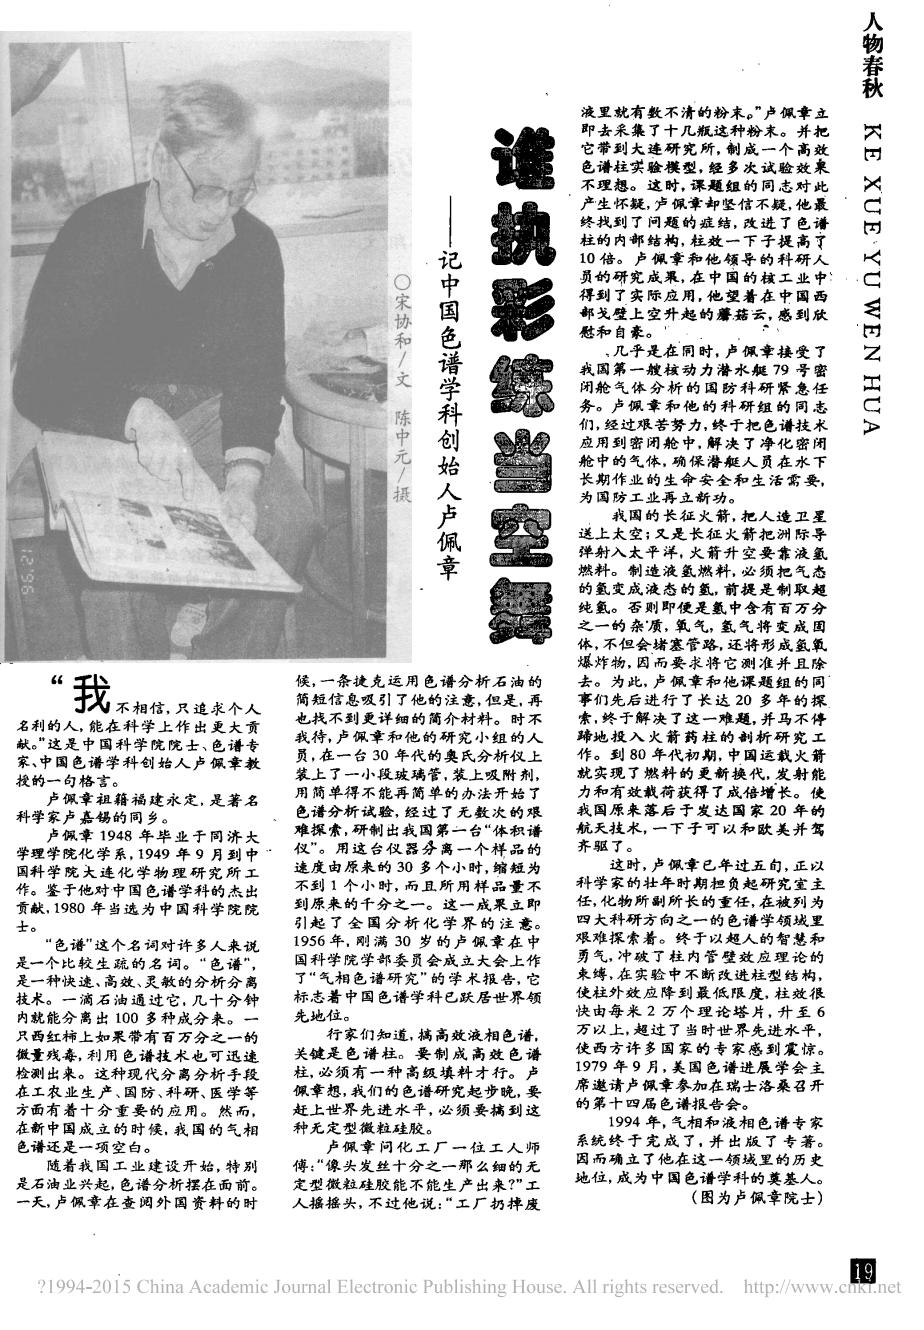 人物春秋 KE XUE YU WEN HUA
谁执彩练当空舞
——记中国色谱学科创始人卢佩章
○宋协和/文 陈中元/摄
“我不相信,只追求个人
名利的人,能在科学上作出更大贡
献。”这是中国科学院院士、色谱专
家、中国色谱学科创始人卢佩章教
授的一句格言。
卢佩章祖籍福建永定,是著名
科学家卢嘉锡的同乡。
卢佩章 1948 年毕业于同济大
学理学院化学系,1949 年 9 月到中
国科学院大连化学物理研究所工
作。鉴于他对中国色谱学科的杰出
贡献,1980 年当选为中国科学院院
士。
“色谱”这个名词对许多人来说
是一个比较生疏的名词。“色谱”,
是一种快速、高效、灵敏的分析分离
技术。一滴石油通过它,几十分钟
内就能分离出 100 多种成分来。一
只西红柿上如果带有百万分之一的
微量残毒,利用色谱技术也可迅速
检测出来。这种现代分离分析手段
在工农业生产、国防、科研、医学等
方面有着十分重要的应用。然而,
在新中国成立的时候,我国的气相
色谱还是一项空白。
随着我国工业建设开始,特别
是石油业兴起,色谱分析摆在面前。
一天,卢佩章在查阅外国资料的时
候,一条捷克运用色谱分析石油的
简短信息吸引了他的注意,但是,再
也找不到更详细的简介材料。时不
我待,卢佩章和他的研究小组的人
员,在一台 30 年代的奥氏分析仪上
装上了一小段玻璃管,装上吸附剂,
用简单得不能再简单的办法开始了
色谱分析试验,经过了无数次的艰
难探索,研制出我国第一台“体积谱
仪”。用这台仪器分离一个样品的
速度由原来的 30 多个小时,缩短为
不到 1 个小时,而且所用样品量不
到原来的千分之一。这一成果立即
引起了全国分析化学界的注意。
1956 年,刚满 30 岁的卢佩章在中
国科学院学部委员会成立大会上作
了“气相色谱研究”的学术报告,它
标志着中国色谱学科已跃居世界领
先地位。
行家们知道,搞高效液相色谱,
关键是色谱柱。要制成高效色谱
柱,必须有一种高级填料才行。卢
佩章想,我们的色谱研究起步晚,要
赶上世界先进水平,必须要搞到这
种无定型微粒硅胶。
卢佩章问化工厂一位工人师
傅:“像头发丝十分之一那么细的无
定型微粒硅胶能不能生产出来?”工
人摇摇头,不过他说:“工厂扔掉废
液里就有数不清的粉末。”卢佩章立
即去采集了十几瓶这种粉末。并把
它带到大连研究所,制成一个高效
色谱柱实验模型,经多次试验效果
不理想。这时,课题组的同志对此
产生怀疑,卢佩章却坚信不疑,他最
终找到了问题的症结,改进了色谱
柱的内部结构,柱效一下子提高了
10 倍。卢佩章和他领导的科研人
员的研究成果,在中国的核工业中
得到了实际应用,他望着在中国西
部戈壁上空升起的蘑菇云,感到欣
慰和自豪。
几乎是在同时,卢佩章接受了
我国第一艘核动力潜水艇 79 号密
闭舱气体分析的国防科研紧急任
务。卢佩章和他的科研组的同志
们,经过艰苦努力,终于把色谱技术
应用到密闭舱中,解决了净化密闭
舱中的气体,确保潜艇人员在水下
长期作业的生命安全和生活需要,
为国防工业再立新功。
我国的长征火箭,把人造卫星
送上太空;又是长征火箭把洲际导
弹射入太平洋,火箭升空要靠液氢
燃料。制造液氢燃料,必须把气态
的氢变成液态的氢,前提是制取超
纯氢。否则即便是氢中含有百万分
之一的杂质,氧气,氢气将变成固
体,不但会堵塞管路,还将形成氢氧
爆炸物,因而要求将它测准并且除
去。为此,卢佩章和他课题组的同
事们先后进行了长达 20 多年的探
索,终于解决了这一难题,并马不停
蹄地投入火箭药柱的剖析研究工
作。到 80 年代初期,中国运载火箭
就实现了燃料的更新换代,发射能
力和有效载荷获得了成倍增长。使
我国原来落后于发达国家 20 年的
航天技术,一下子可以和欧美并驾
齐驱了。
这时,卢佩章已年过五旬,正以
科学家的壮年时期担负起研究室主
任,化物所副所长的重任,在被列为
四大科研方向之一的色谱学领域里
艰难探索着。终于以超人的智慧和
勇气,冲破了柱内管壁效应理论的
束缚,在实验中不断改进柱型结构,
使柱外效应降到最低限度,柱效很
快由每米 2 万个理论塔片,升至 6
万以上,超过了当时世界先进水平,
使西方许多国家的专家感到震惊。
1979 年 9 月,美国色谱进展学会主
席邀请卢佩章参加在瑞士洛桑召开
的第十四届色谱报告会。
1994 年,气相和液相色谱专家
系统终于完成了,并出版了专著。
因而确立了他在这一领域里的历史
地位,成为中国色谱学科的奠基人。
(图为卢佩章院士)
19
?1994-2015 China Academic Journal Electronic Publishing House. All rights reserved. http://www.cnki.net